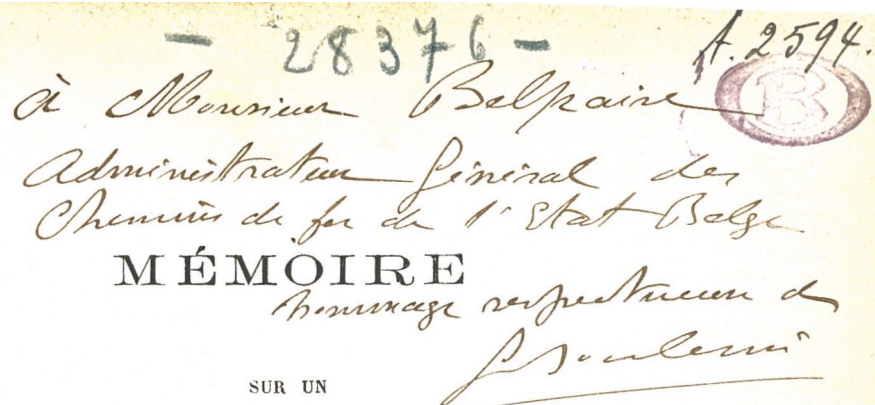 - 28376 -
A. 2594.
B
à Monsieur Belpaire
Administrateur Général des
Chemins de fer de l'Etat Belge
MÉMOIRE
hommage respectueux de
SUR UN